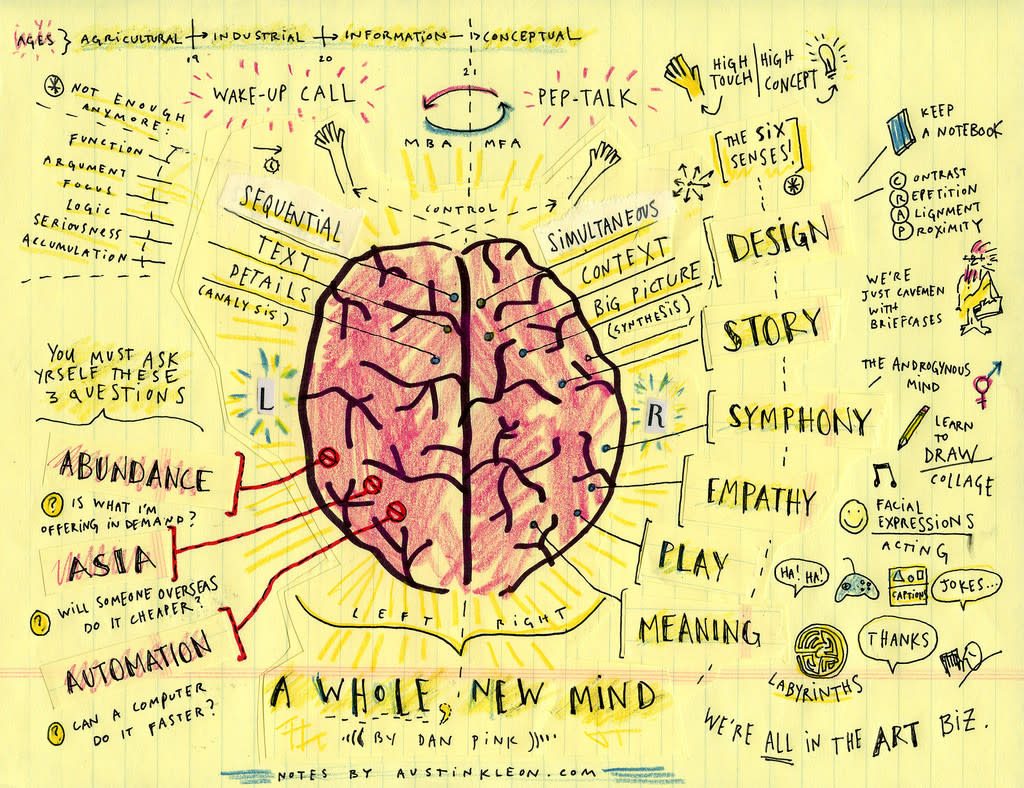 AGES} AGRICULTURAL → INDUSTRIAL → INFORMATION → CONCEPTUAL
19 20 21
WAKE-UP CALL
PEP-TALK
MBA MFA
HIGH TOUCH
HIGH CONCEPT
NOT ENOUGH
ANYMORE:
FUNCTION
ARGUMENT
FOCUS
LOGIC
SERIOUSNESS
ACCUMULATION
CONTROL
SEQUENTIAL
TEXT
DETAILS
(ANALYSIS)
SIMULTANEOUS
CONTEXT
BIG PICTURE
(SYNTHESIS)
L
R
YOU MUST ASK
YRSELF THESE
3 QUESTIONS
ABUNDANCE
? IS WHAT I'M
OFFERING IN DEMAND?
ASIA
? WILL SOMEONE OVERSEAS
DO IT CHEAPER?
AUTOMATION
? CAN A COMPUTER
DO IT FASTER?
[THE SIX
SENSES!]
DESIGN
STORY
SYMPHONY
EMPATHY
PLAY
MEANING
KEEP
A NOTEBOOK
CONTRAST
REPETITION
ALIGNMENT
PROXIMITY
WE'RE
JUST CAVEMEN
WITH
BRIEFCASES
THE ANDROGYNOUS
MIND
LEARN
TO
DRAW
COLLAGE
FACIAL
EXPRESSIONS
ACTING
HA! HA!
CAPTIONS
JOKES...
LABYRINTHS
THANKS
WE'RE ALL IN THE ART BIZ.
LEFT RIGHT
A WHOLE, NEW MIND
(((( BY DAN PINK ))))
NOTES BY AUSTINKLEON.COM